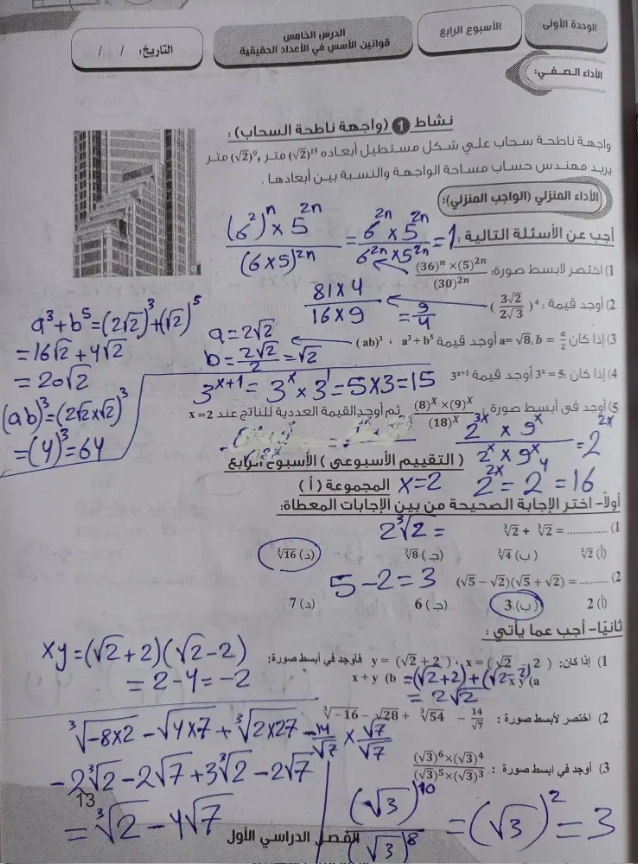 الوحدة الأولى
الأسبوع الرابع
الدرس الخامس
قوانين الأسس في الأعداد الحقيقية
التاريخ: / /
الأداء الصفي:
نشاط 1 (واجهة ناطحة السحاب):
واجهة ناطحة سحاب علي شكل مستطيل أبعاده (√2)¹⁵ متر, (√2)⁹ متر
يريد مهندس حساب مساحة الواجهة والنسبة بين أبعادها.
الأداء المنزلي (الواجب المنزلي):
أجب عن الأسئلة التالية:
(6²)ⁿ × 5²ⁿ / (6×5)²ⁿ = 6²ⁿ × 5²ⁿ / 6²ⁿ × 5²ⁿ = 1
1) اختصر لأبسط صورة: (36)ⁿ × (5)²ⁿ / (30)²ⁿ
2) أوجد قيمة: (3√2 / 2√3)⁴
81 × 4 / 16 × 9 = 9/4
3) إذا كان a = √8, b = a/2 أوجد قيمة a³ + b⁵ ، (ab)³
a = 2√2
b = 2√2/2 = √2
a³ + b⁵ = (2√2)³ + (√2)⁵
= 16√2 + 4√2
= 20√2
(ab)³ = (2√2 × √2)³
= (4)³ = 64
4) إذا كان 3ˣ = 5، أوجد قيمة 3ˣ⁺¹
3ˣ⁺¹ = 3ˣ × 3¹ = 5 × 3 = 15
5) أوجد في أبسط صورة: (8)ˣ × (9)ˣ / (18)ˣ ثم أوجد القيمة العددية للناتج عند x = 2
2³ˣ × 9ˣ / 2ˣ × 9ˣ = 2²ˣ
x = 2 2²ˣ = 2⁴ = 16
(التقييم الأسبوعي) الأسبوع الرابع
المجموعة (أ)
أولاً- اختر الإجابة الصحيحة من بين الإجابات المعطاة:
1) ∛2 + ∛2 = ............
2∛2 =
(أ) ∛2 (ب) ∛4 (جـ) ∛8 (د) ∛16
2) (√5 − √2)(√5 + √2) = ..........
5 − 2 = 3
(أ) 2 (ب) 3 (جـ) 6 (د) 7
ثانيًا- أجب عما يأتي:
1) إذا كان: x = (√2 − 2) ، y = (√2 + 2) فأوجد في أبسط صورة:
xy (a x + y (b
= (√2+2) + (√2−2)
= 2√2
xy = (√2 + 2)(√2 − 2)
= 2 − 4 = −2
2) اختصر لأبسط صورة: ∛−16 − √28 + ∛54 − 14/√7
∛−8×2 − √4×7 + ∛2×27 − 14/√7 × √7/√7
−2∛2 − 2√7 + 3∛2 − 2√7
= ∛2 − 4√7
3) أوجد في أبسط صورة: (√3)⁶ × (√3)⁴ / (√3)⁵ × (√3)³
(√3)¹⁰ / (√3)⁸ = (√3)² = 3
13
الفصل الدراسي الأول